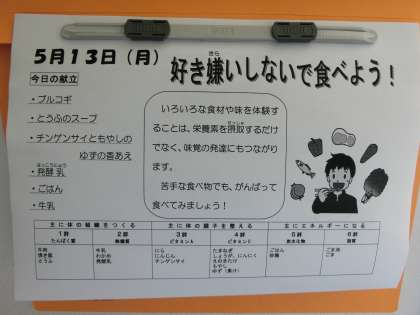 5月13日（月）
好き嫌いしないで食べよう！
きら
今日の献立
・プルコギ
・とうふのスープ
・チンゲンサイともやしの
ゆずの香あえ
はっこうにゅう
・発酵乳
・ごはん
・牛乳
いろいろな食材や味を体験す
ることは、栄養素を摂取するだけ
せっしゅ
でなく、味覚の発達にもつながり
ます。
苦手な食べ物でも、がんばって
食べてみましょう！
主に体の組織をつくる 主に体の調子を整える 主にエネルギーになる
1群 2群 3群 4群 5群 6群
たんぱく質 無機質 ビタミンA ビタミンC 炭水化物 脂質
牛肉 牛乳 にら たまねぎ ごはん ごま油
焼き豚 わかめ にんじん しょうが、にんにく 砂糖 ごま
とうふ 発酵乳 チンゲンサイ えのきたけ
もやし
ゆず（果汁）